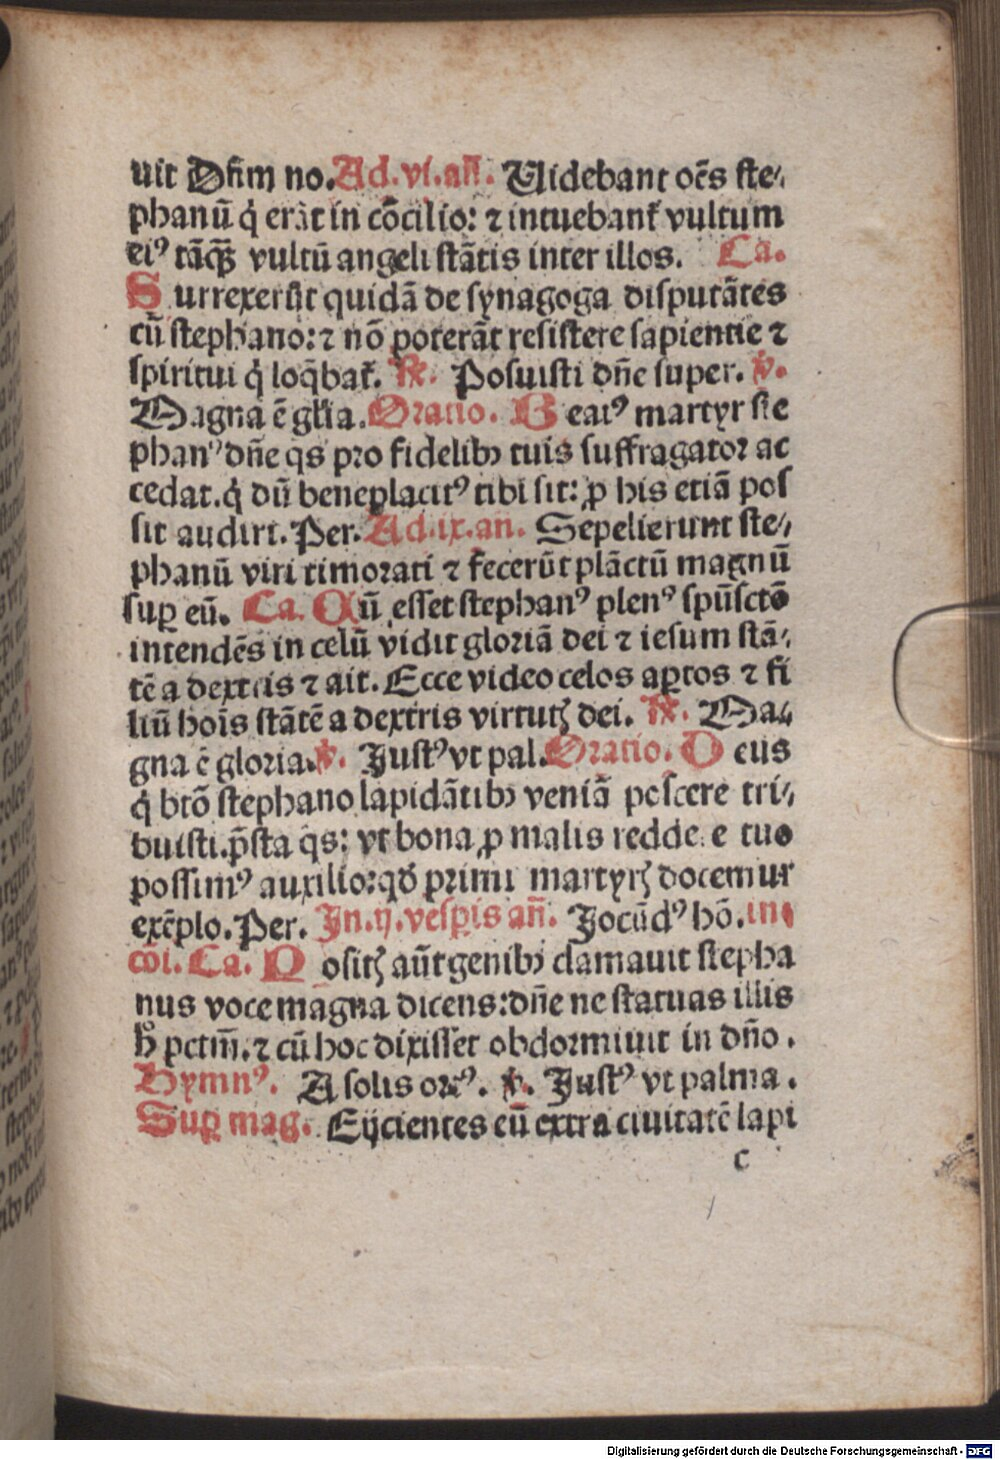 uit Dñm no. Ad.vi.añ. Uidebant oēs ste⸗
phanū q̇ erāt in cōcilio: ⁊ intuebant᷑ vultum
eiꝰ tāqꝫ vultū angeli stātis inter illos. Ca.
Surrexerūt quidā de synagoga disputātes
cū stephano: ⁊ nō poterāt resistere sapientie ⁊
spiritui q̇ loq̄bat᷑. ℟. Posuisti dñe super. ℣.
Magna ē gl̄ia. Oratio. Beatꝰ martyr ste
phanꝰ dñe q̄s pro fidelibꝫ tuis suffragator ac
cedat. q̇ dū beneplacitꝰ tibi sit: ꝓ his etiā pos
sit audiri. Per. Ad.ix.an. Sepelierunt ste⸗
phanū viri timorati ⁊ fecerūt plāctū magnū
suꝑ eū. Ca. Cū esset stephanꝰ plenꝰ spūsctō
intendēs in celū vidit gloriā dei ⁊ iesum stā⸗
tē a dextris ⁊ ait. Ecce video celos aꝑtos ⁊ fi
liū hoīs stātē a dextris virtutꝭ dei. ℟. Ma⸗
gna ē gloria. ℣. Justꝰ vt pal. Oratio. Deus
q̇ btō stephano lapidātibꝫ veniā poscere tri⸗
buisti. p̄sta q̄s: vt bona ꝓ malis reddere tuo
possimꝰ auxilio: qđ primi martyrꝭ docemur
exēplo. Per. In.ij. vesꝑis añ. Jocūdꝰ hō. in
cōi. Ca. Positꝭ aūt genibꝫ clamauit stepha
nus voce magna dicens: dñe ne statuas illis
h̊ pctm̄. ⁊ cū hoc dixisset obdormiuit in dño.
Hymnꝰ. A solis ortꝰ. ℣. Justꝰ vt palma.
Suꝑ mag. Eijcientes eū extra ciuitatē lapi
c
Digitalisierung gefördert durch die Deutsche Forschungsgemeinschaft - DFG